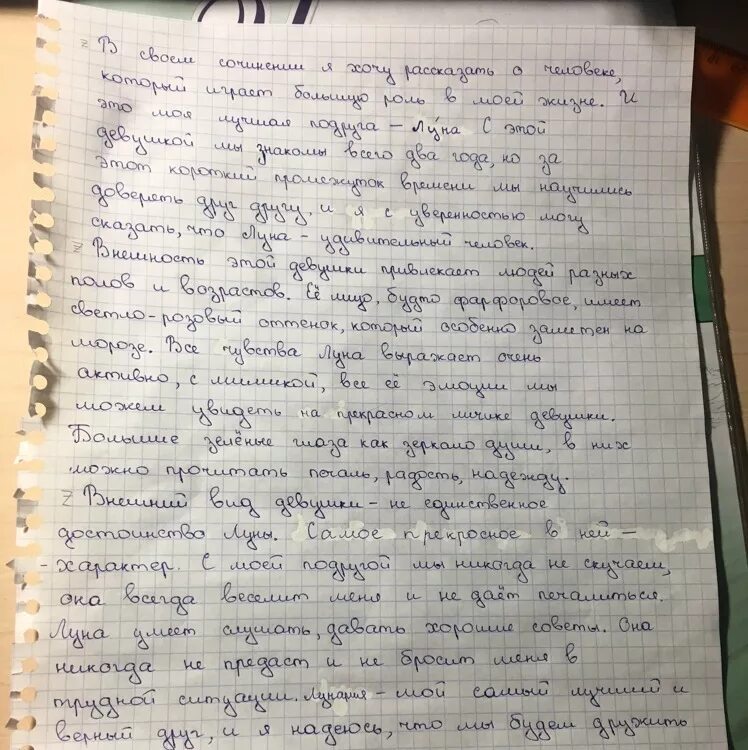 Z В своем сочинении я хочу рассказать о человеке,
который играет большую роль в моей жизне. И
это моя лучшая подруга – Лу́на С этой
девушкой мы знакомы всего два года, но за
этот короткий промежуток времени мы научились
доверять друг другу, и я с уверенностью могу
сказать, что Луна – удивительный человек.
Z Внешность этой девушки привлекает людей разных
полов и возрастов. Её лицо, будто фарфоровое, имеет
светло-розовый оттенок, который особенно заметен на
морозе. Все чувства Луна выражает очень
активно, с мимикой, все её эмоции мы
можем увидеть на прекрасном личике девушки.
Большие зелёные глаза как зеркало души, в них
можно прочитать печаль, радость, надежду.
Z Внешний вид девушки – не единственное
достоинство Луны. Самое прекросное в ней –
- характер. С моей подругой мы никогда не скучаем,
она всегда веселит меня и не даёт печалиться.
Луна умеет слушать, давать хорошие советы. Она
никогда не предаст и не бросит меня в
трудной ситуации. Лунария – мой самый лучший и
верный друг, и я надеюсь, что мы будем дружить